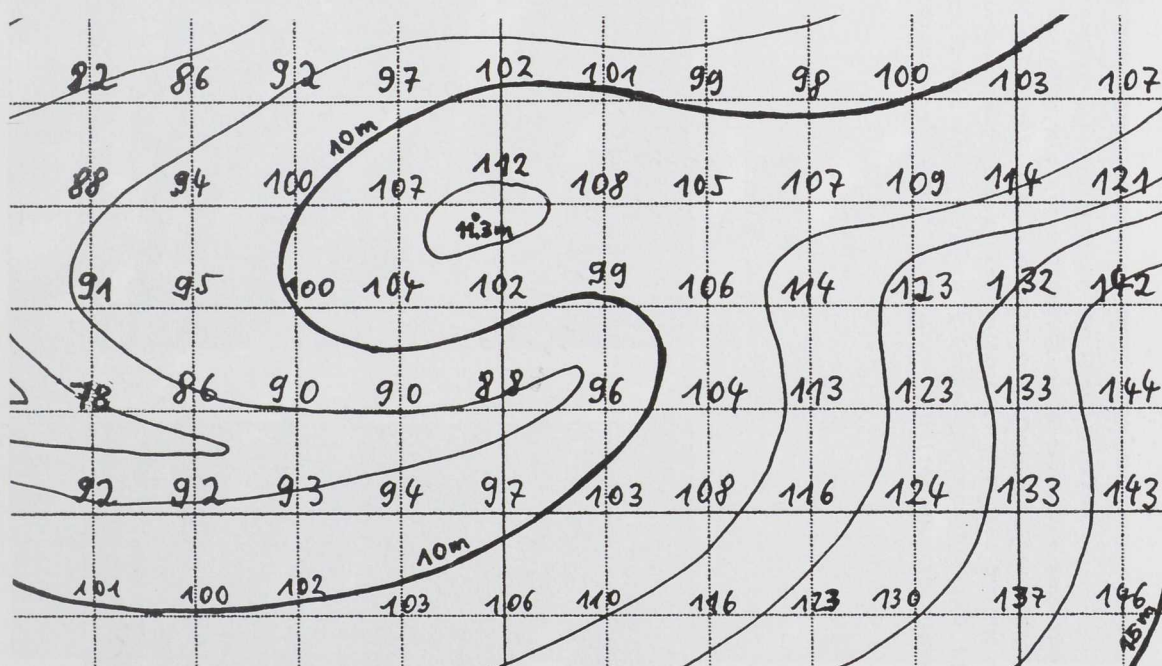 82 86 92 97 102 101 99 98 100 103 107
10m
88 94 100 107 112 108 105 107 109 114 121
11,3m
91 95 100 104 102 99 106 114 123 132 142
78 86 90 90 88 96 104 113 123 133 144
92 92 93 94 97 103 108 116 124 133 143
10m
101 100 102 103 106 110 116 123 130 137 146
15m